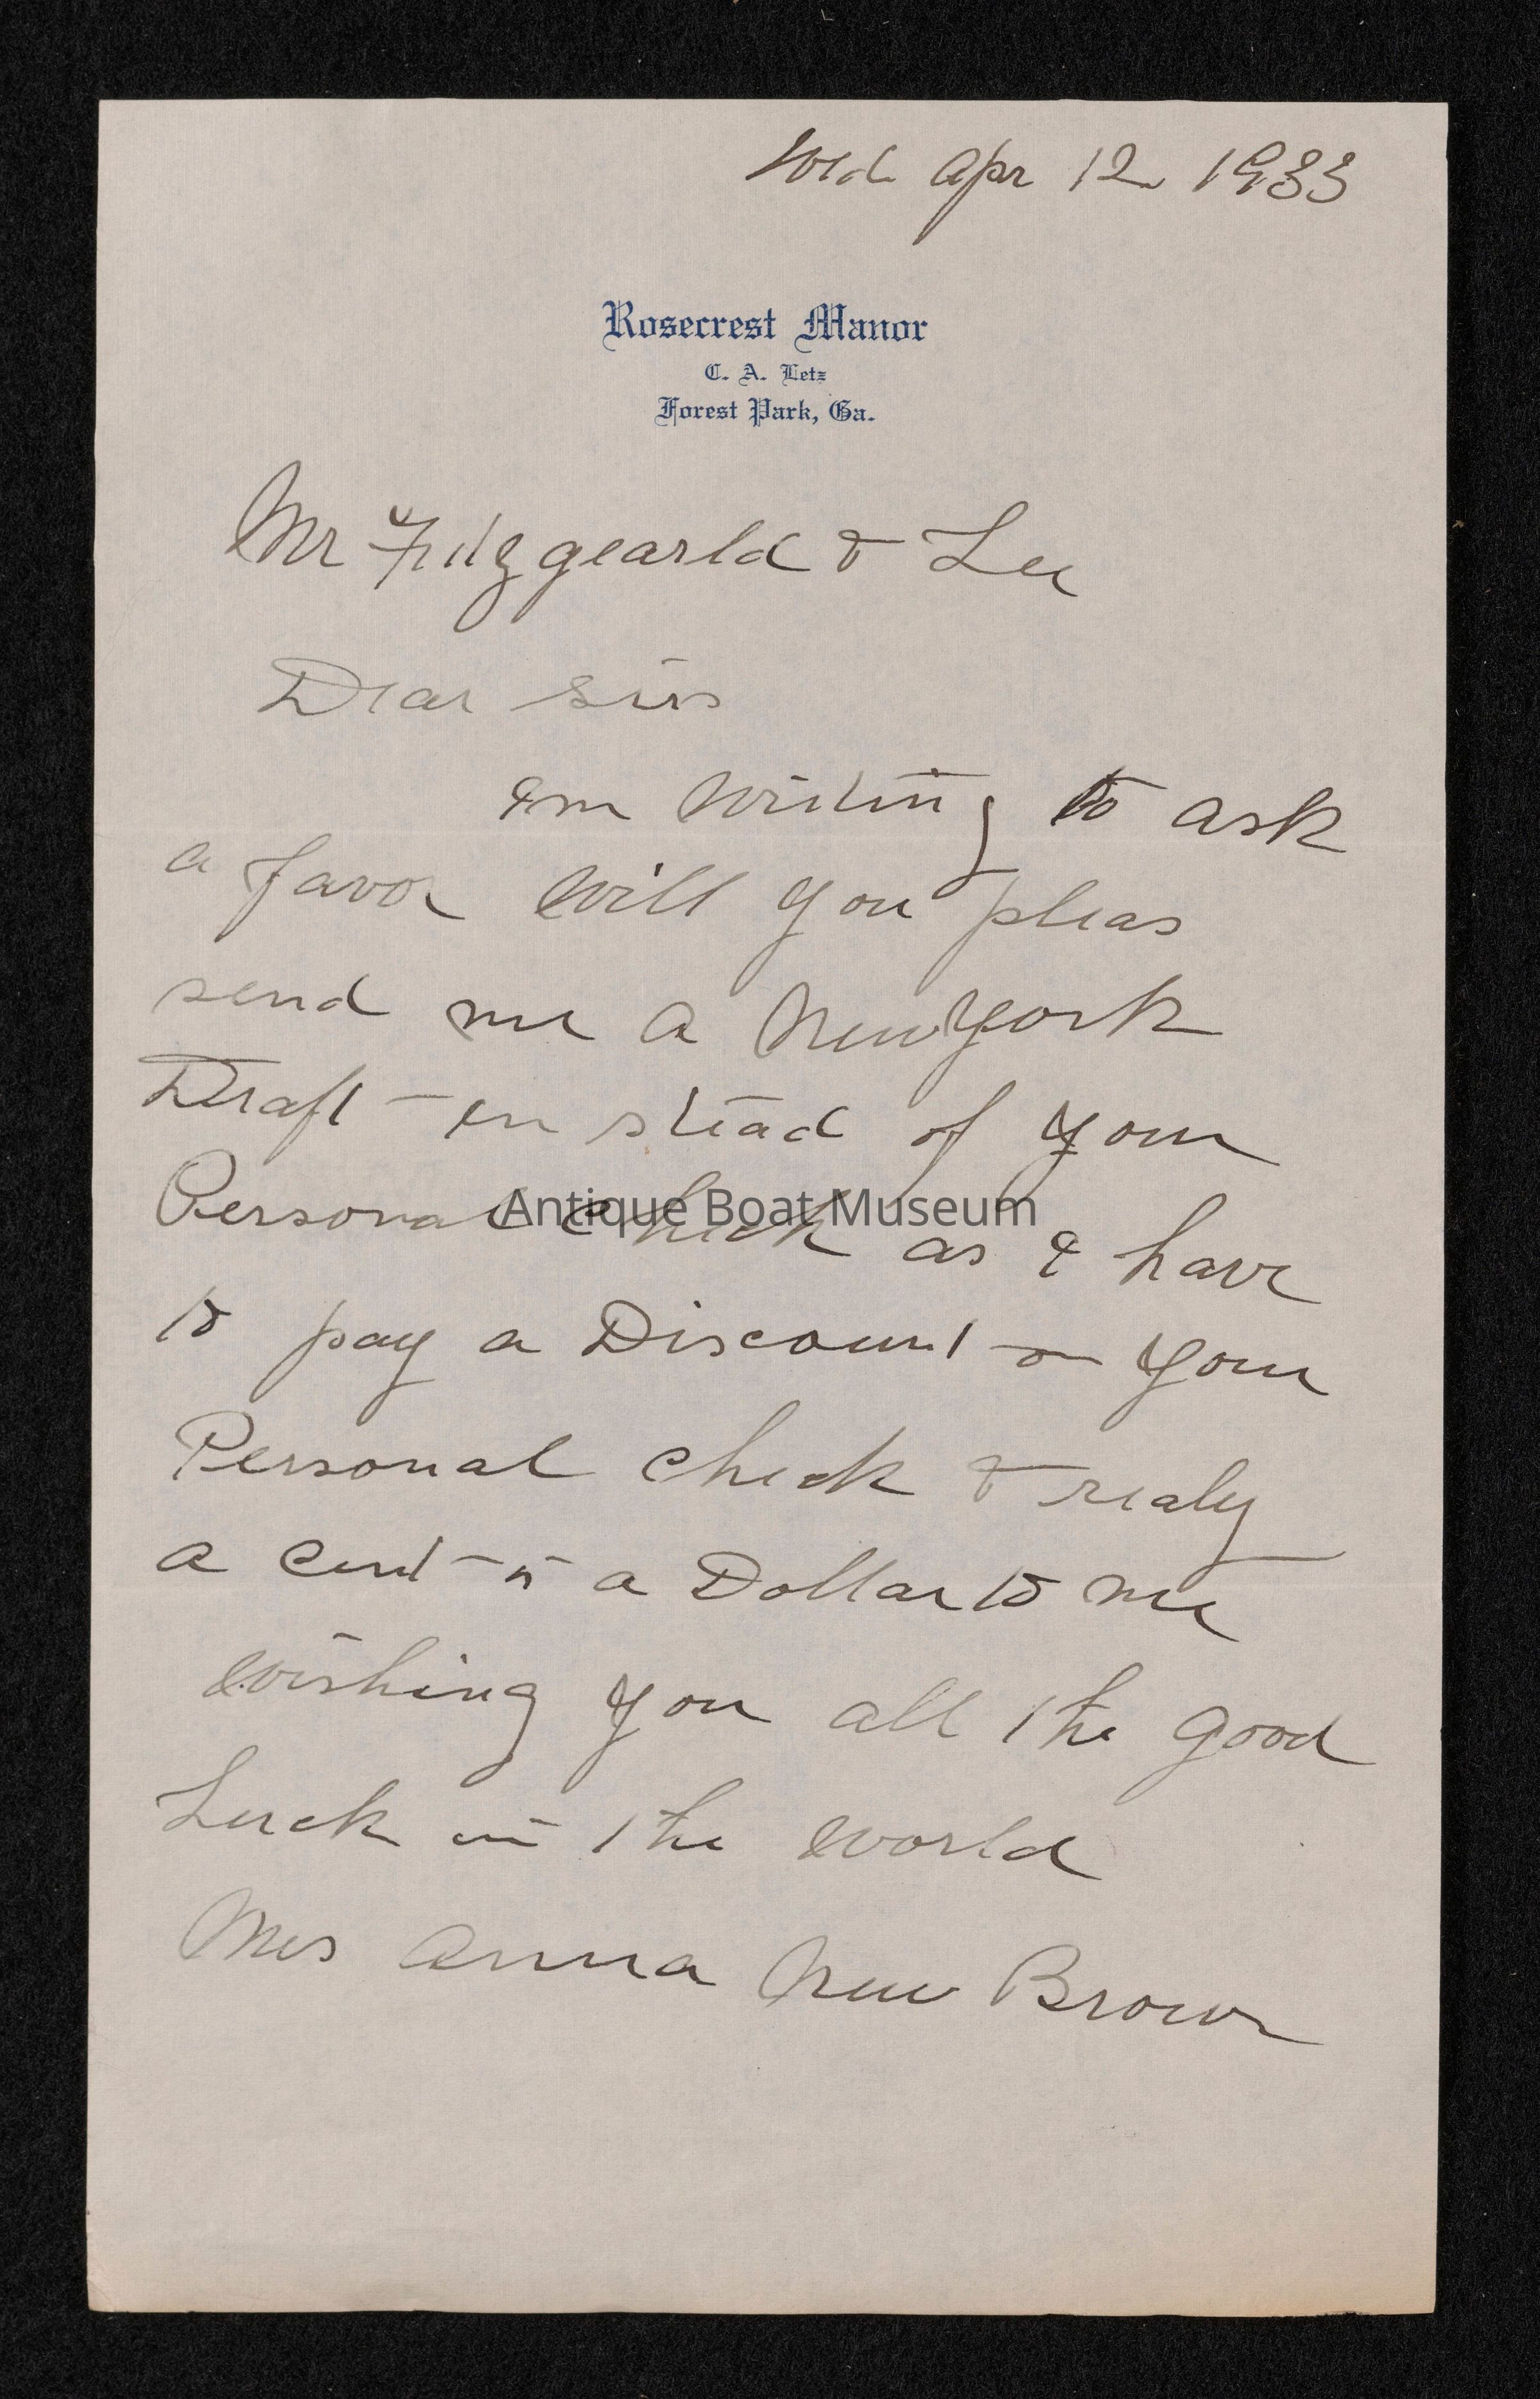 Wed Apr 12 1933
Rosecrest Manor
C. A. Letz
Forest Park, Ga.
Mr Fitzgearld & Lee
Dear Sirs
Am writing to ask
a favor will you pleas
send me a New York
Draft in stead of your
Personal check as I have
to pay a Discount on your
Personal check & realy
a cent is a Dollar to me
wishing you all the good
Luck in the world
Mrs Anna New Brown
Antique Boat Museum